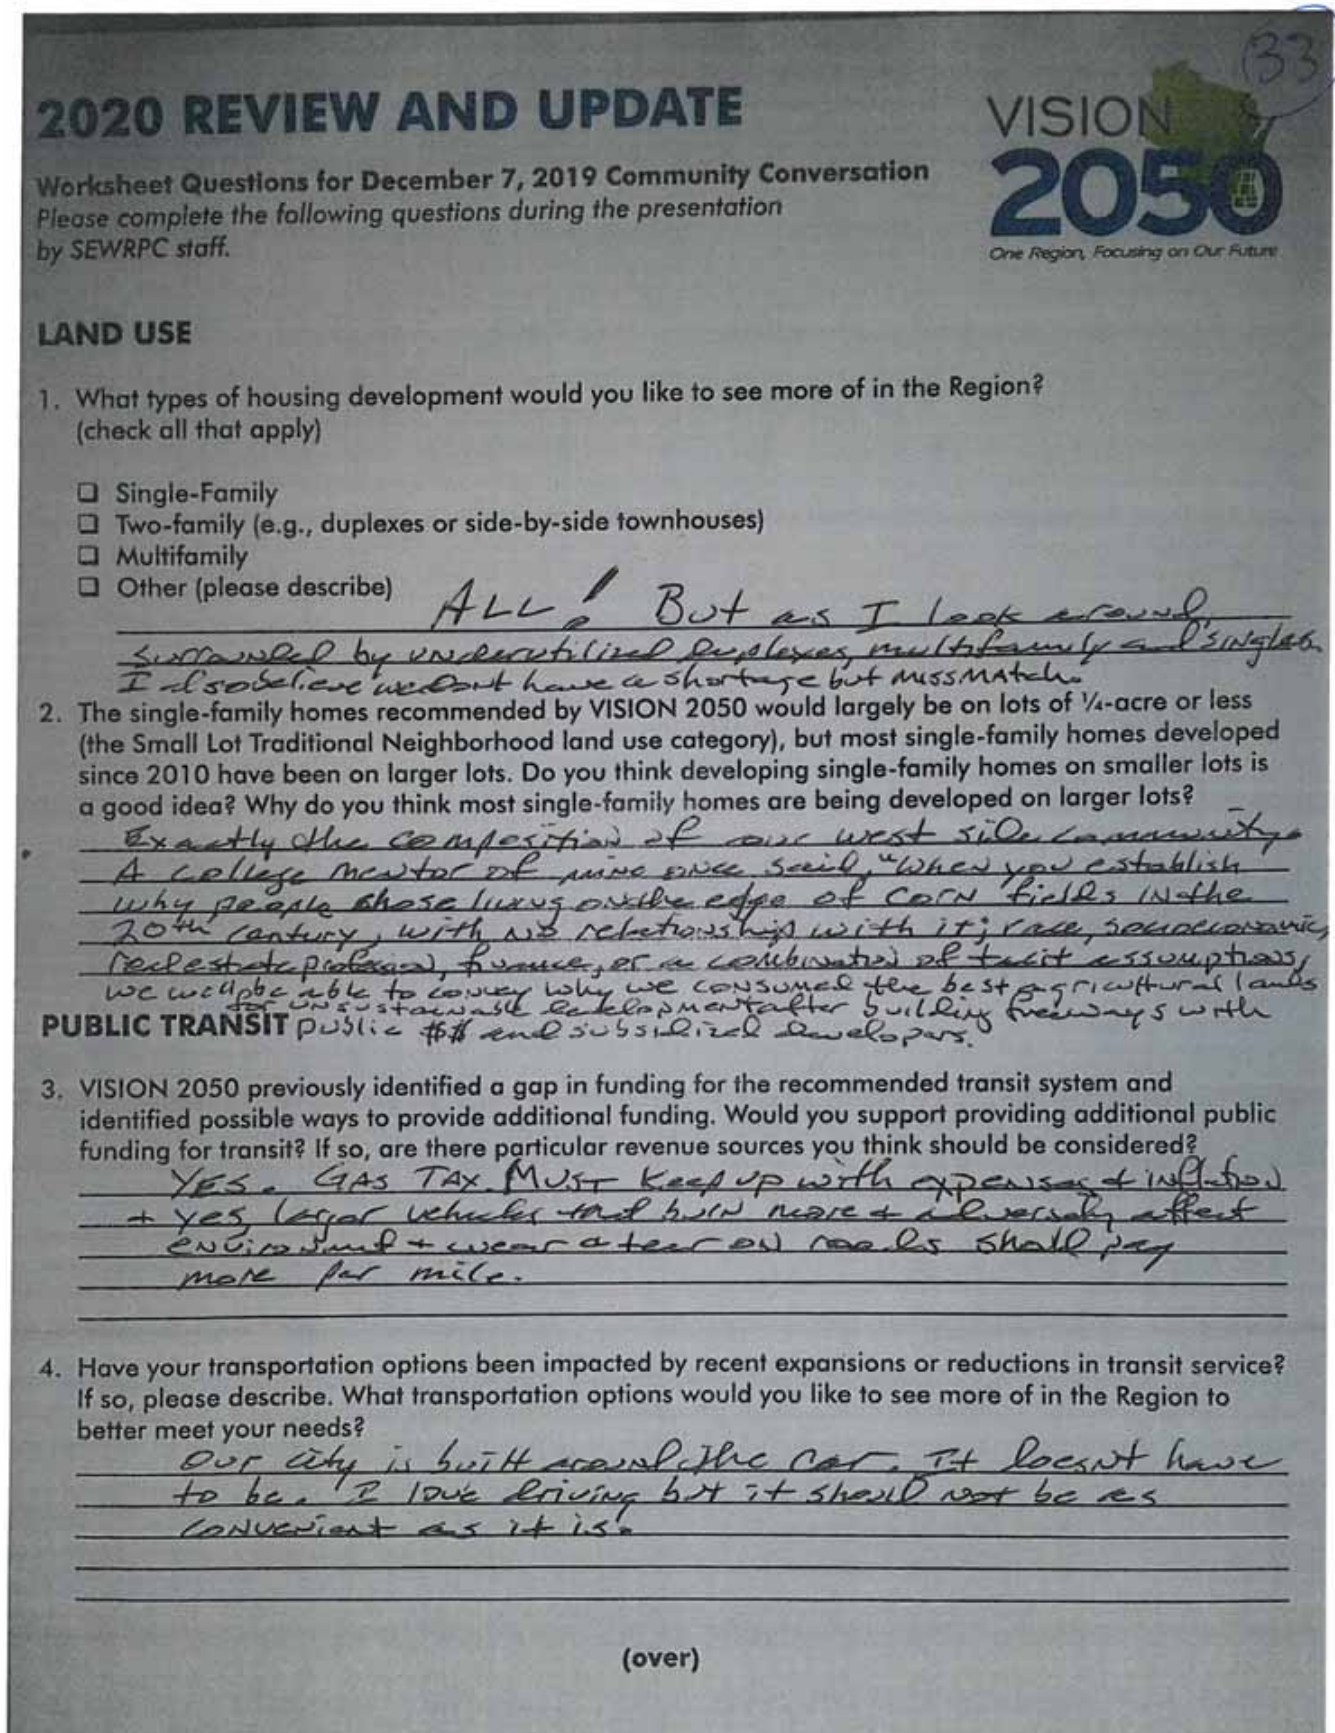 33
2020 REVIEW AND UPDATE
VISION
2050
One Region, Focusing on Our Future
Worksheet Questions for December 7, 2019 Community Conversation
Please complete the following questions during the presentation
by SEWRPC staff.
LAND USE
1. What types of housing development would you like to see more of in the Region?
(check all that apply)
❑ Single-Family
❑ Two-family (e.g., duplexes or side-by-side townhouses)
❑ Multifamily
❑ Other (please describe)
ALL! But as I look around
surrounded by underutilized duplexes, multifamily and singles
I also believe we dont have a shortage but missmatch.
2. The single-family homes recommended by VISION 2050 would largely be on lots of ¼-acre or less
(the Small Lot Traditional Neighborhood land use category), but most single-family homes developed
since 2010 have been on larger lots. Do you think developing single-family homes on smaller lots is
a good idea? Why do you think most single-family homes are being developed on larger lots?
Exactly the composition of our west side community.
A college mentor of mine once said, "When you establish
why people chose living on the edge of corn fields in the
20th century, with no relationship with it; race, socioeconomic,
real estate, finance, or a combination of tacit assumptions,
we will be able to convey why we consumed the best agricultural lands
for unsustainable development after building freeways with
PUBLIC TRANSIT
public $$ and subsidized developers."
3. VISION 2050 previously identified a gap in funding for the recommended transit system and
identified possible ways to provide additional funding. Would you support providing additional public
funding for transit? If so, are there particular revenue sources you think should be considered?
YES. GAS TAX MUST keep up with expenses + inflation
+ yes, larger vehicles that burn more + adversely affect
environment + wear a tear on roads shall pay
more per mile.
4. Have your transportation options been impacted by recent expansions or reductions in transit service?
If so, please describe. What transportation options would you like to see more of in the Region to
better meet your needs?
Our city is built around the car. It doesnt have
to be. I love driving but it should not be as
convenient as it is.
(over)